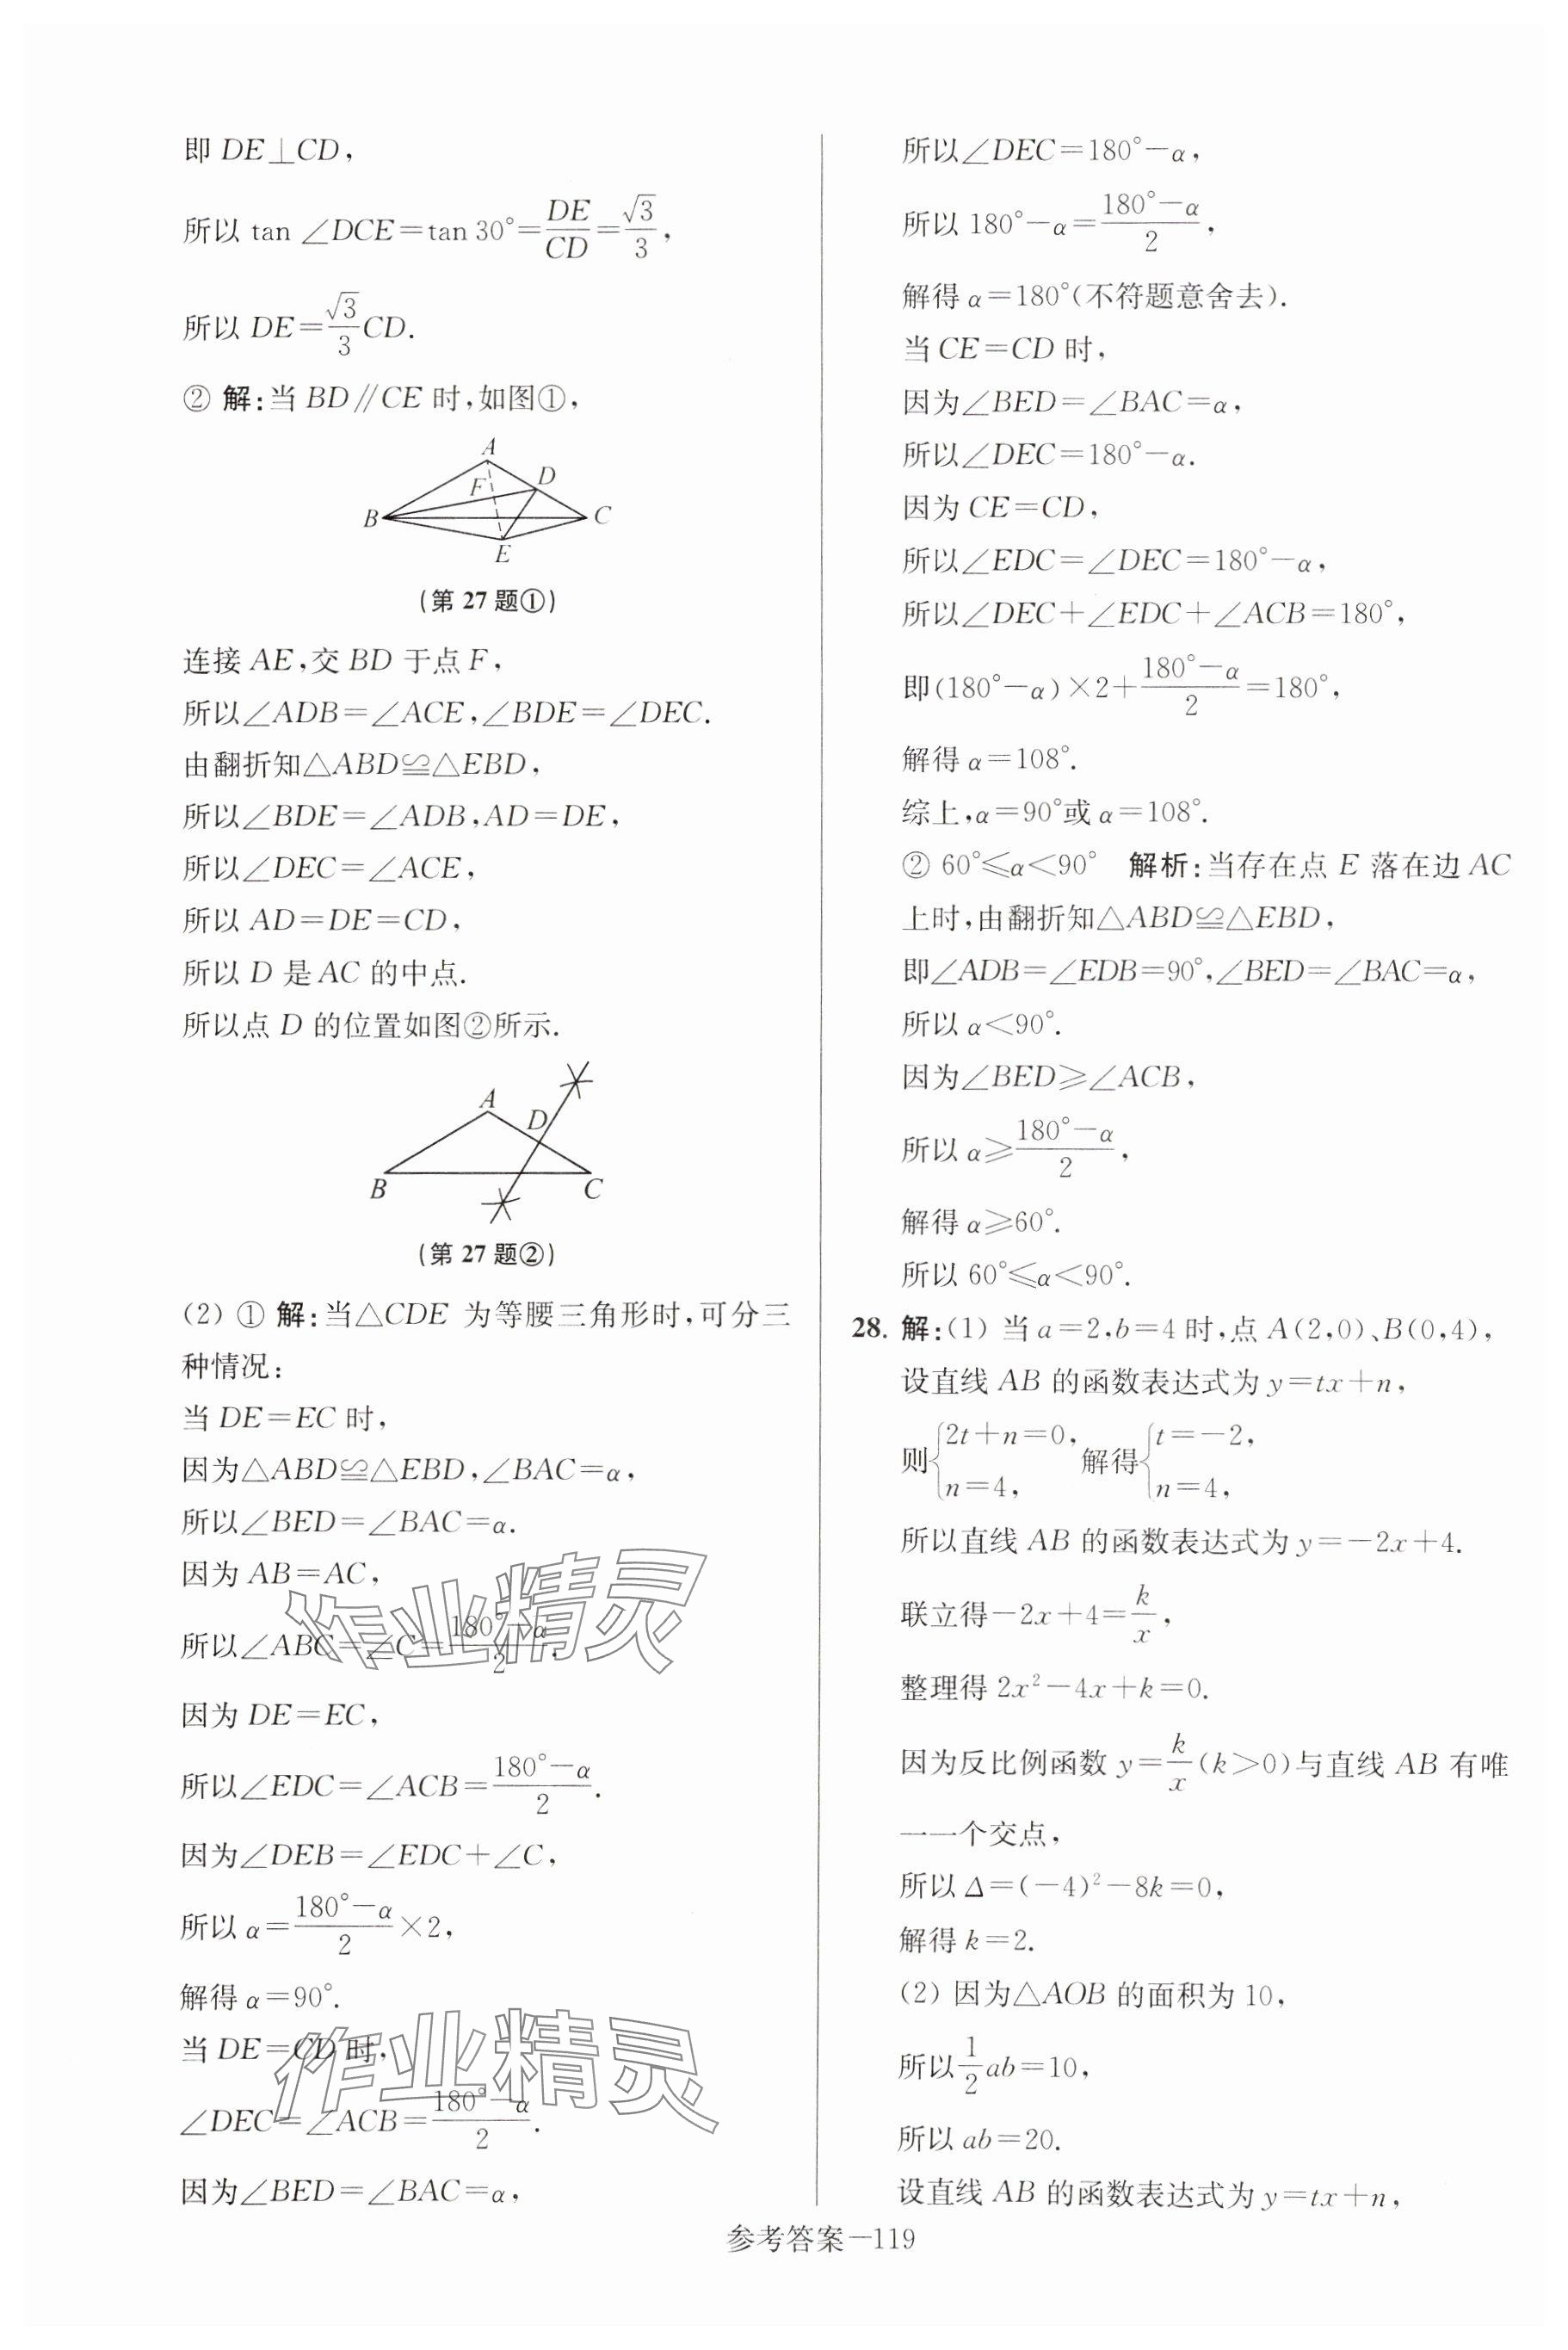 即 DE⊥CD，
所以 tan ∠DCE＝tan 30°＝DE/CD＝√3/3，
所以 DE＝√3/3 CD.
② 解：当 BD∥CE 时，如图①，
A
F
D
B
C
E
(第 27 题①)
连接 AE，交 BD 于点 F，
所以∠ADB＝∠ACE，∠BDE＝∠DEC.
由翻折知△ABD≌△EBD，
所以∠BDE＝∠ADB，AD＝DE，
所以∠DEC＝∠ACE，
所以 AD＝DE＝CD，
所以 D 是 AC 的中点.
所以点 D 的位置如图②所示.
A
D
B
C
(第 27 题②)
(2) ① 解：当△CDE 为等腰三角形时，可分三
种情况：
当 DE＝EC 时，
因为△ABD≌△EBD，∠BAC＝α，
所以∠BED＝∠BAC＝α.
因为 AB＝AC，
所以∠ABC＝∠C＝(180°－α)/2，
因为 DE＝EC，
所以∠EDC＝∠ACB＝(180°－α)/2.
因为∠DEB＝∠EDC＋∠C，
所以 α＝(180°－α)/2×2，
解得 α＝90°.
当 DE＝CD 时，
∠DEC＝∠ACB＝(180°－α)/2.
因为∠BED＝∠BAC＝α，
所以∠DEC＝180°－α，
所以 180°－α＝(180°－α)/2，
解得 α＝180°(不符题意舍去).
当 CE＝CD 时，
因为∠BED＝∠BAC＝α，
所以∠DEC＝180°－α.
因为 CE＝CD，
所以∠EDC＝∠DEC＝180°－α，
所以∠DEC＋∠EDC＋∠ACB＝180°，
即(180°－α)×2＋(180°－α)/2＝180°，
解得 α＝108°.
综上，α＝90°或 α＝108°.
② 60°≤α＜90° 解析：当存在点 E 落在边 AC
上时，由翻折知△ABD≌△EBD，
即∠ADB＝∠EDB＝90°，∠BED＝∠BAC＝α，
所以 α＜90°.
因为∠BED≥∠ACB，
所以 α≥(180°－α)/2，
解得 α≥60°.
所以 60°≤α＜90°.
28. 解：(1) 当 a＝2，b＝4 时，点 A(2，0)、B(0，4)，
设直线 AB 的函数表达式为 y＝tx＋n，
则{2t＋n＝0，n＝4，解得{t＝－2，n＝4，
所以直线 AB 的函数表达式为 y＝－2x＋4.
联立得－2x＋4＝k/x，
整理得 2x²－4x＋k＝0.
因为反比例函数 y＝k/x(k＞0)与直线 AB 有唯
一一个交点，
所以 Δ＝(－4)²－8k＝0，
解得 k＝2.
(2) 因为△AOB 的面积为 10，
所以1/2 ab＝10，
所以 ab＝20.
设直线 AB 的函数表达式为 y＝tx＋n，
参考答案—119
作业精灵
作业精灵